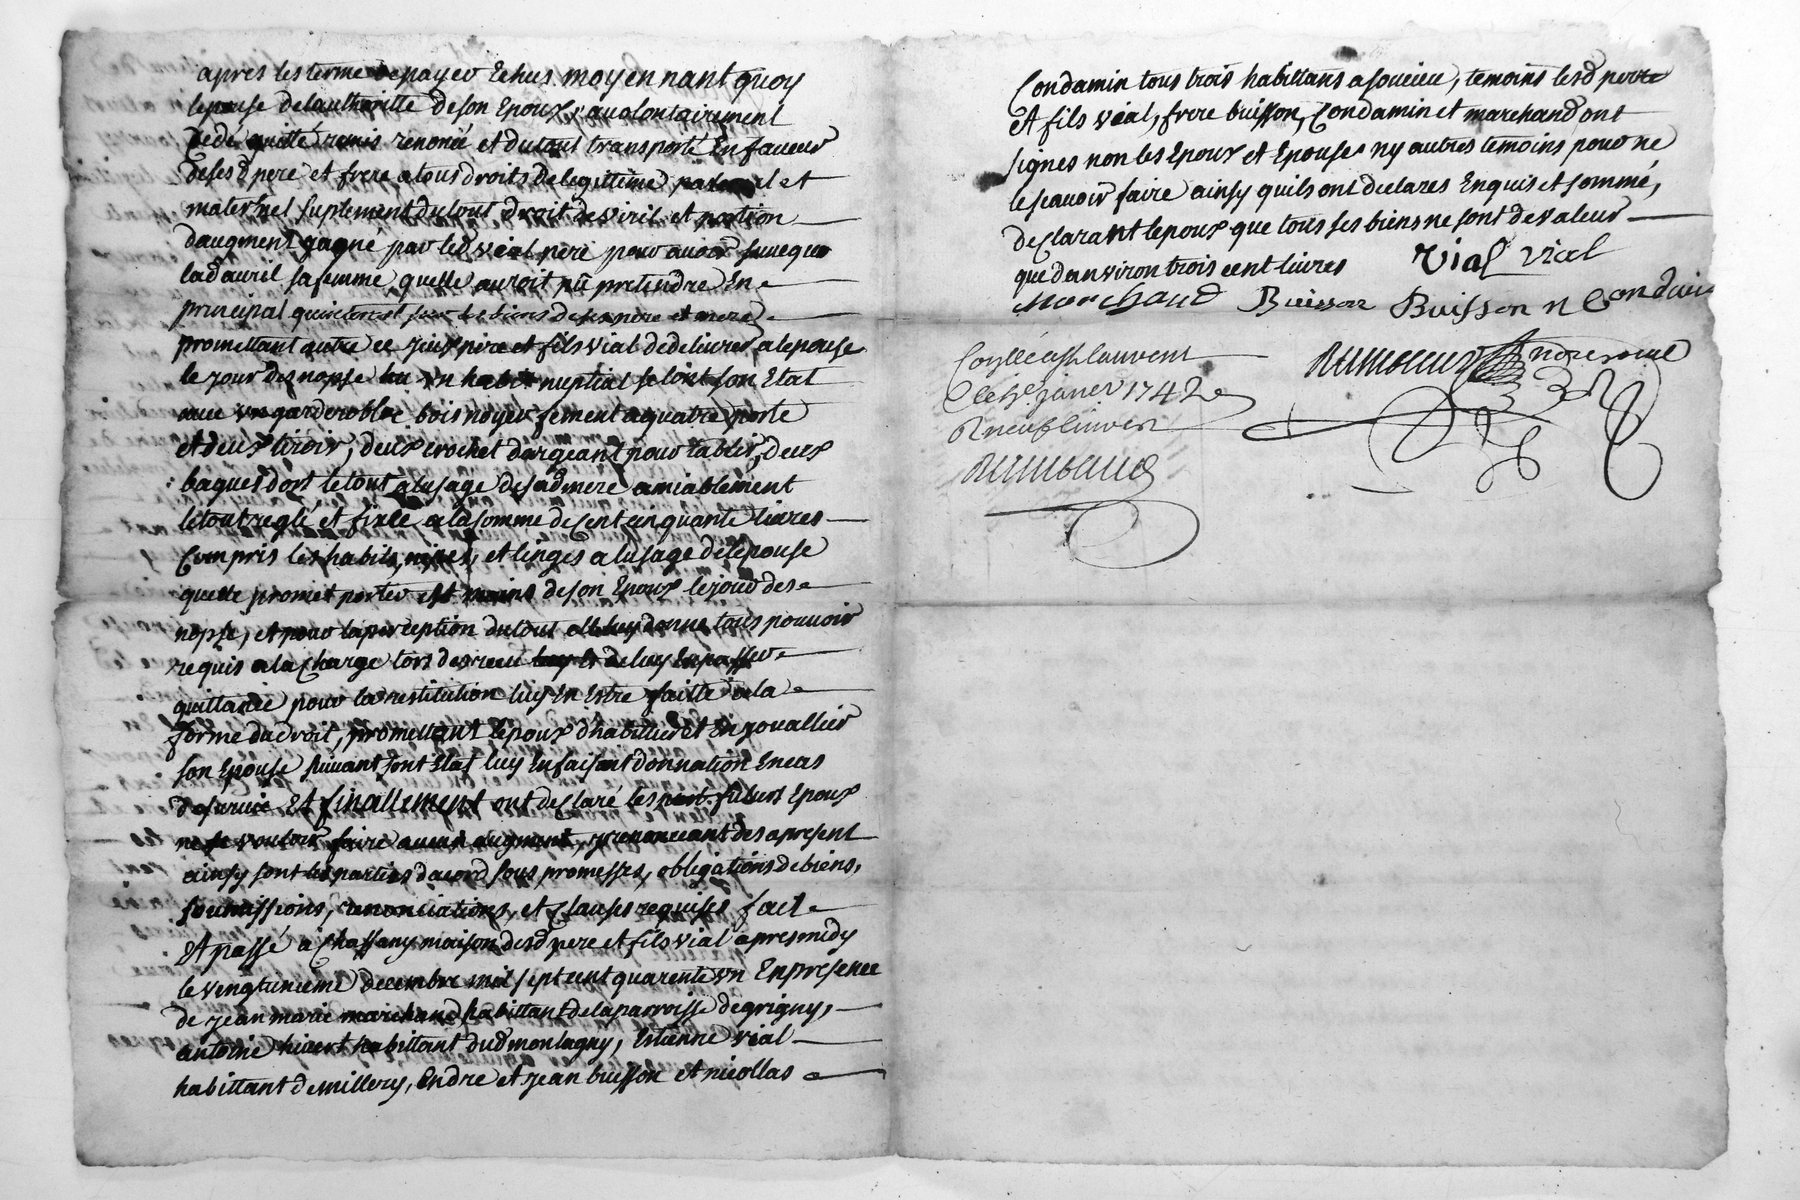 apres les terme de payer Echus moyennant quoy
lepouse de lauthoritté de son Epoux, a volontairement
Cedé quitté remis renoncé et du tout transporté En faveur
desesd pere et frere a tous droits de legittime paternel et
maternel suplement du tout droit de viril et portion
daugment gagné par led vial pere pour avoir survequ
lad avril sa femme quelle auroit pû pretendre En
principal sur les biens de ses pere et mere
promettant outre ce yceux pere et fils vial de delivrer a lepouse
le jour des nopse un habit nuptial selont son Etat
une garderobbe bois noyer fement a quatre porte
et deux tiroir, deux crochet dargeant pour tablier, deux
bagues dort le tout a lusage de sad mere amiablement
le tout reglé et fixée a la somme de cent cinquante livres
Compris les habits, nipes, et linges a lusage de lepouse
quelle promet porter est mains de son Epoux le jour des
nopse, et pour la perception du tout elle luy donne tous pouvoir
requis a la charge lors des receu de luy En passer
quittance pour la restitution luy En Estre faitte a la
forme du droit, promettant lepoux dhabiller et En jouallier
son Epouse suivant sont Etat luy En faisant donnation En cas
de survie Et finallement ont declaré les futurs Epoux
ne se vouloir faire aucun augment, y renonceant des apresent
ainsy sont les parties dacord sous promesses, obligations de biens,
soumissions, renonciations, et Clauses requises fait
Et passé a Chassany maison desd pere et fils vial apres midy
le vengtunieme decembre mil sept cent quarente un En presence
de jean marie marchand habittant de la parroisse de grigny,
antoine huert habittant dud montagny, Estienne vial
habittant de millery, Endre et jean buisson et nicollas
Condamin tous trois habittans a soucieu, temoins lesd pere
et fils vial, frere buisson, Condamin et marchand ont
signes non les Epoux et Epouse ny autres temoins pour ne
le scavoir faire ainsy quils ont declares Enquis et sommé,
declarant lepoux que tous ses biens ne sont de valeur
que danviron trois cent livres Vial vial
marchand Buisson Buisson n Condamin
Con͞llé a St lauvent
le janer 1742
R neuf livres
Raimbaud
Raimbaud